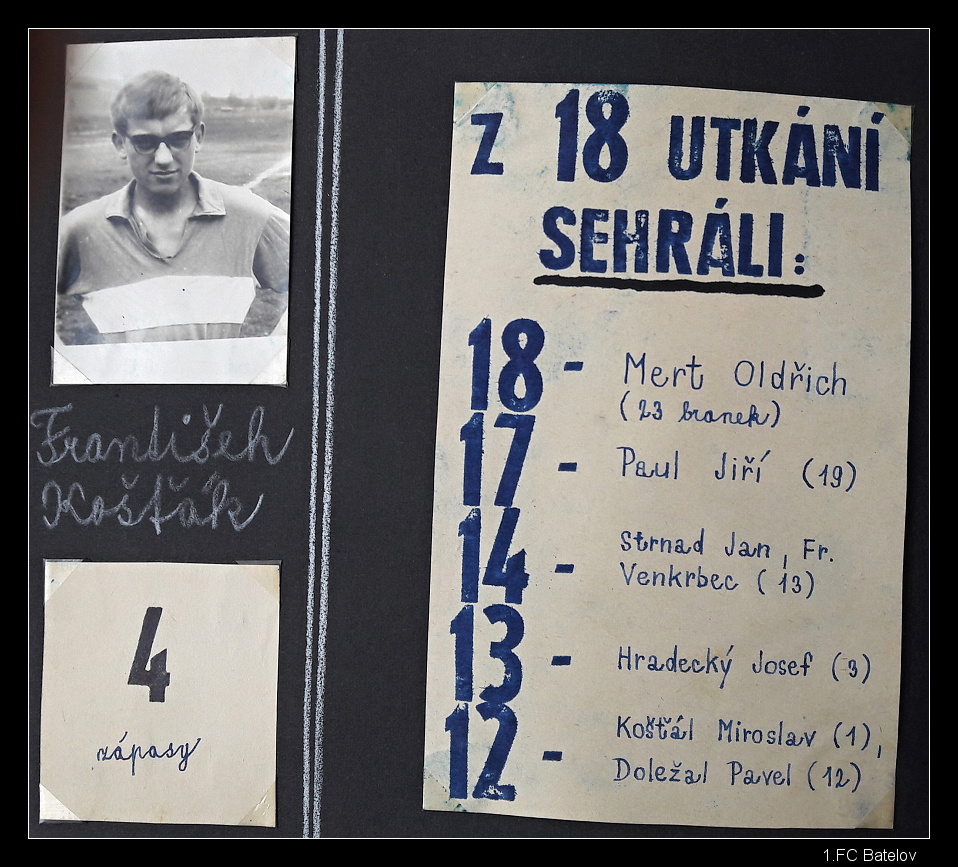 František
Košťák
4
zápasy
Z 18 UTKÁNÍ
SEHRÁLI:
18 - Mert Oldřich
(23 branek)
17 - Paul Jiří (19)
14 - Strnad Jan, Fr.
Venkrbec (13)
13 - Hradecký Josef (3)
12 - Košťál Miroslav (1),
Doležal Pavel (12)
1.FC Batelov